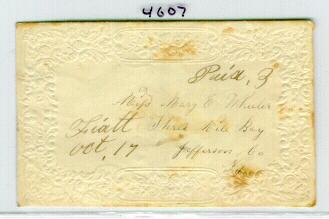 4607
Paid, 3
Miss Mary E Wheeler
Fiatt Three Mile Bay
Oct, 17 Jefferson Co